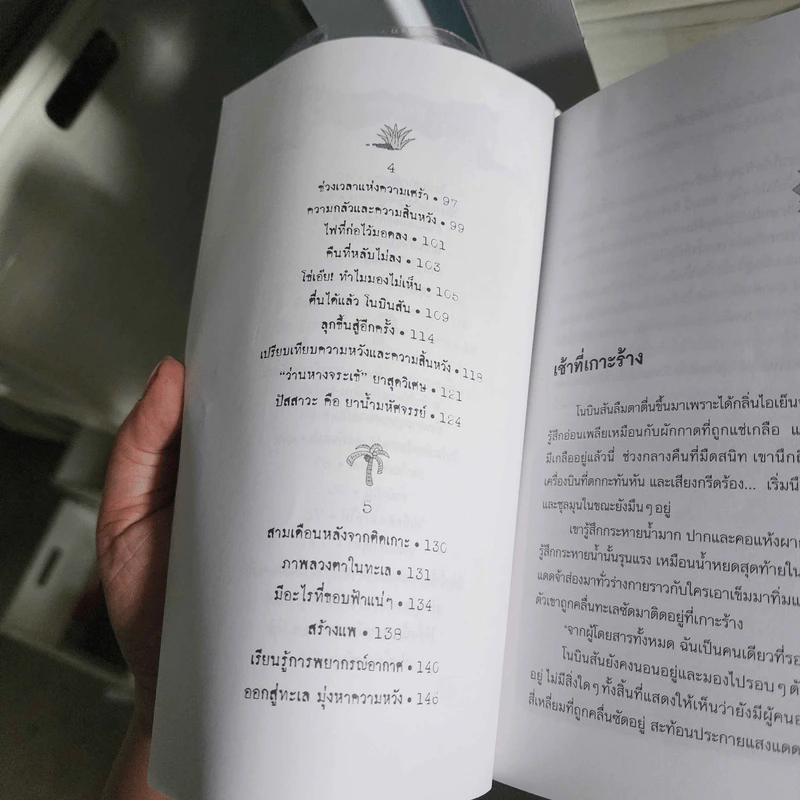 4
ช่วงเวลาแห่งความเศร้า • 97
ความกลัวและความสิ้นหวัง • 99
ไฟที่ก่อไว้มอดลง • 101
คืนที่หลับไม่ลง • 103
โธ่เอ๊ย! ทำไมมองไม่เห็น • 105
ตื่นได้แล้ว โนบินสัน • 109
ลุกขึ้นสู้อีกครั้ง • 114
เปรียบเทียบความหวังและความสิ้นหวัง • 118
“ว่านหางจระเข้” ยาสุดวิเศษ • 121
ปัสสาวะ คือ ยาน้ำมหัศจรรย์ • 124
5
สามเดือนหลังจากติดเกาะ • 130
ภาพลวงตาในทะเล • 131
มีอะไรที่ขอบฟ้าแน่ๆ • 134
สร้างแพ • 138
เรียนรู้การพยากรณ์อากาศ • 140
ออกสู่ทะเล มุ่งหาความหวัง • 146
เช้าที่เกาะร้าง
โนบินสันลืมตาตื่นขึ้นมาเพราะได้กลิ่นไอเย็น
รู้สึกอ่อนเพลียเหมือนกับผักกาดที่ถูกแช่เกลือ
มีเกลืออยู่แล้วนี่ ช่วงกลางคืนที่มืดสนิท เขานึกถึ
เครื่องบินที่ตกกะทันหัน และเสียงกรีดร้อง... เริ่ม
และชุลมุนในขณะยังมึนๆ อยู่
เขารู้สึกกระหายน้ำมาก ปากและคอแห้งผาก
รู้สึกกระหายน้ำนั้นรุนแรง เหมือนน้ำหยดสุดท้ายใน
แดดจ้าส่องมาทั่วร่างกายราวกับใครเอาเข็มมาทิ่ม
ตัวเขาถูกคลื่นทะเลซัดมาติดอยู่ที่เกาะร้าง
“จากผู้โดยสารทั้งหมด ฉันเป็นคนเดียวที่รอ
โนบินสันยังคงนอนอยู่และมองไปรอบๆ ตั
อยู่ ไม่มีสิ่งใดๆ ทั้งสิ้นที่แสดงให้เห็นว่ายังมีผู้คน
สี่เหลี่ยมที่ถูกคลื่นซัดอยู่ สะท้อนประกายแสงแดด